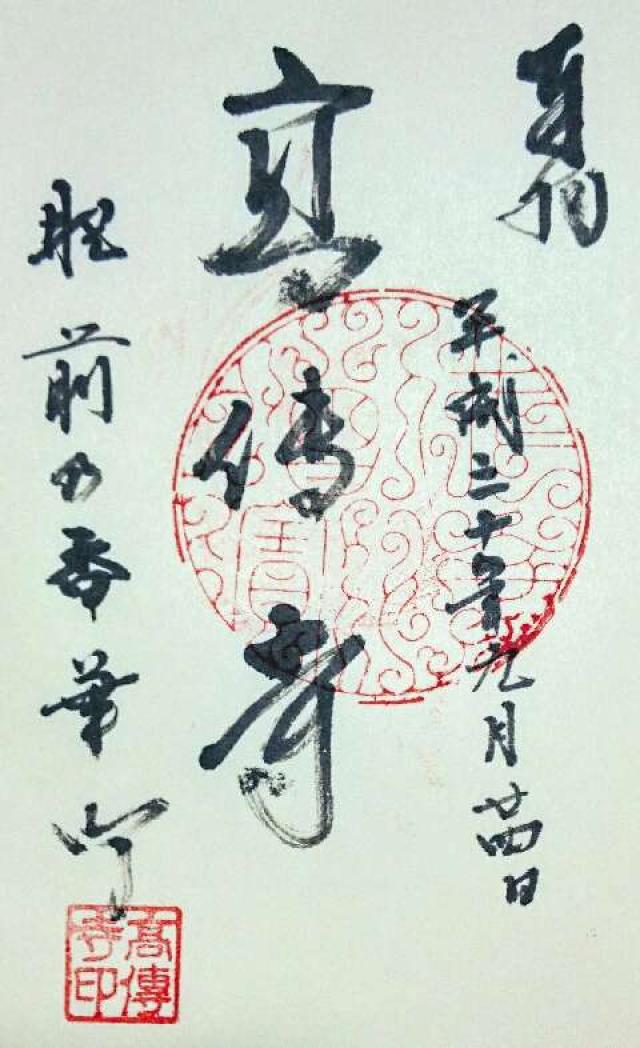 奉拝
平成二十年九月廿四日
高傳寺
肥前乃香華
高傳寺印